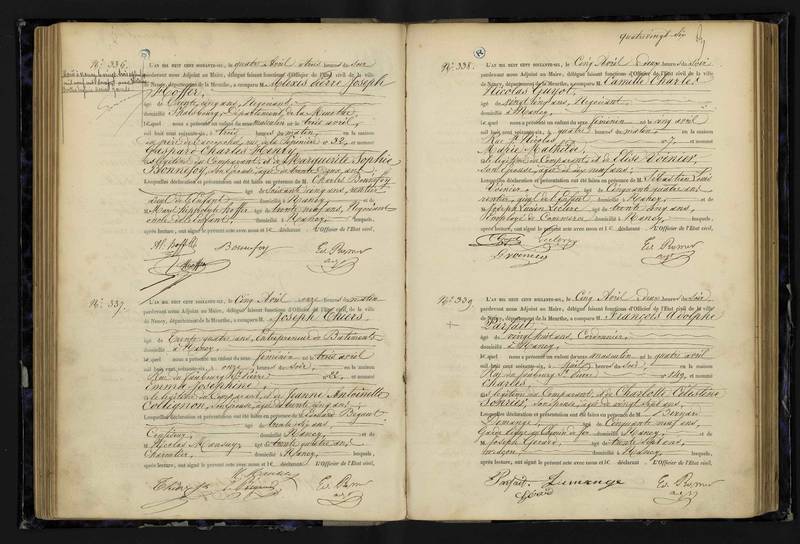 N.º 336.
L'AN MIL HUIT CENT SOIXANTE-SIX, le quatre Avril à trois heures du soir
pardevant nous Adjoint au Maire, délégué faisant fonctions d'Officier de l'État civil de la ville
de Nancy, département de la Meurthe, a comparu M. Alexis Pierre Joseph
Hoffer,
âgé de trente cinq ans, Négociant
domicilié à Phalsbourg, Département de la Meurthe,
lequel nous a présenté un enfant du sexe masculin né le trois avril
mil huit cent soixante-six, à trois heures du matin, en la maison
N.º 32, et nommé
Gaspard Charles Henry,
fils légitime du Comparant, et de Marguerite Sophie
Bonnefoy, son épouse, âgée de trente cinq ans;
Lesquelles déclaration et présentation ont été faites en présence de M. Charles Bonnefoy
âgé de soixante cinq ans, rentier
aïeul de l'Enfant domicilié à Nancy et de
M. Marc Hippolyte Hoffer âgé de trente neuf ans, Négociant
oncle de l'Enfant domicilié à Nancy lesquels,
après lecture, ont signé le présent acte avec nous et le déclarant. L'Officier de l'État civil,
Bonnefoy
N.º 337.
L'AN MIL HUIT CENT SOIXANTE-SIX, le Cinq Avril à onze heures du matin
pardevant nous Adjoint au Maire, délégué faisant fonctions d'Officier de l'État civil de la ville
de Nancy, département de la Meurthe, a comparu M. Joseph Thiers,
âgé de trente quatre ans, Entrepreneur de Bâtiments
domicilié à Nancy,
lequel nous a présenté un enfant du sexe féminin né le trois avril
mil huit cent soixante-six, à onze heures du soir, en la maison
Rue du faubourg St Pierre N.º 22, et nommé
Emma Joséphine,
fille légitime du Comparant, et de Jeanne Antoinette
Collignon, son épouse, âgée de trente cinq ans;
Lesquelles déclaration et présentation ont été faites en présence de M.
âgé de trente six ans,
domicilié à Nancy, et de
M. Nicolas âgé de trente quatre ans,
Charretier, domicilié à Nancy, lesquels,
après lecture, ont signé le présent acte avec nous et le déclarant. L'Officier de l'État civil,
quatrevingt-six
N.º 338.
L'AN MIL HUIT CENT SOIXANTE-SIX, le Cinq Avril à deux heures du soir
pardevant nous Adjoint au Maire, délégué faisant fonctions d'Officier de l'État civil de la ville
de Nancy, département de la Meurthe, a comparu M. Camille Charles
Nicolas Guyot,
âgé de vingt cinq ans, Négociant,
domicilié à Nancy,
lequel nous a présenté un enfant du sexe féminin né le cinq avril
mil huit cent soixante-six, à quatre heures du matin, en la maison
Rue St Nicolas N.º 7, et nommé
Marie Mathilde,
fille légitime du Comparant, et de Elise Voinier,
son épouse, âgée de vingt ans;
Lesquelles déclaration et présentation ont été faites en présence de M. Sébastien Louis
Voinier, âgé de Cinquante quatre ans
rentier, aïeul de l'Enfant domicilié à Nancy, et de
M. Joseph Lucien Leclerc âgé de trente cinq ans,
Employé de Commerce domicilié à Nancy, lesquels,
après lecture, ont signé le présent acte avec nous et le déclarant. L'Officier de l'État civil,
N.º 339.
L'AN MIL HUIT CENT SOIXANTE-SIX, le Cinq Avril à deux heures du soir
pardevant nous Adjoint au Maire, délégué faisant fonctions d'Officier de l'État civil de la ville
de Nancy, département de la Meurthe, a comparu M. François Adolphe
Parfait,
âgé de vingt huit ans, Cordonnier,
domicilié à Nancy,
lequel nous a présenté un enfant du sexe masculin né le quatre avril
mil huit cent soixante-six, à heures du soir, en la maison
Rue du faubourg St Pierre N.º 149, et nommé
Charles,
fils légitime du Comparant, et de Charlotte Célestine
son épouse, âgée de vingt sept ans,
Lesquelles déclaration et présentation ont été faites en présence de M. Bernard
Lemange, âgé de Cinquante neuf ans,
Chemin de fer domicilié à Nancy, et de
M. Joseph Gérard, âgé de trente sept ans,
domicilié à Nancy, lesquels,
après lecture, ont signé le présent acte avec nous et le déclarant. L'Officier de l'État civil,
Parfait. Lemange
Gérard